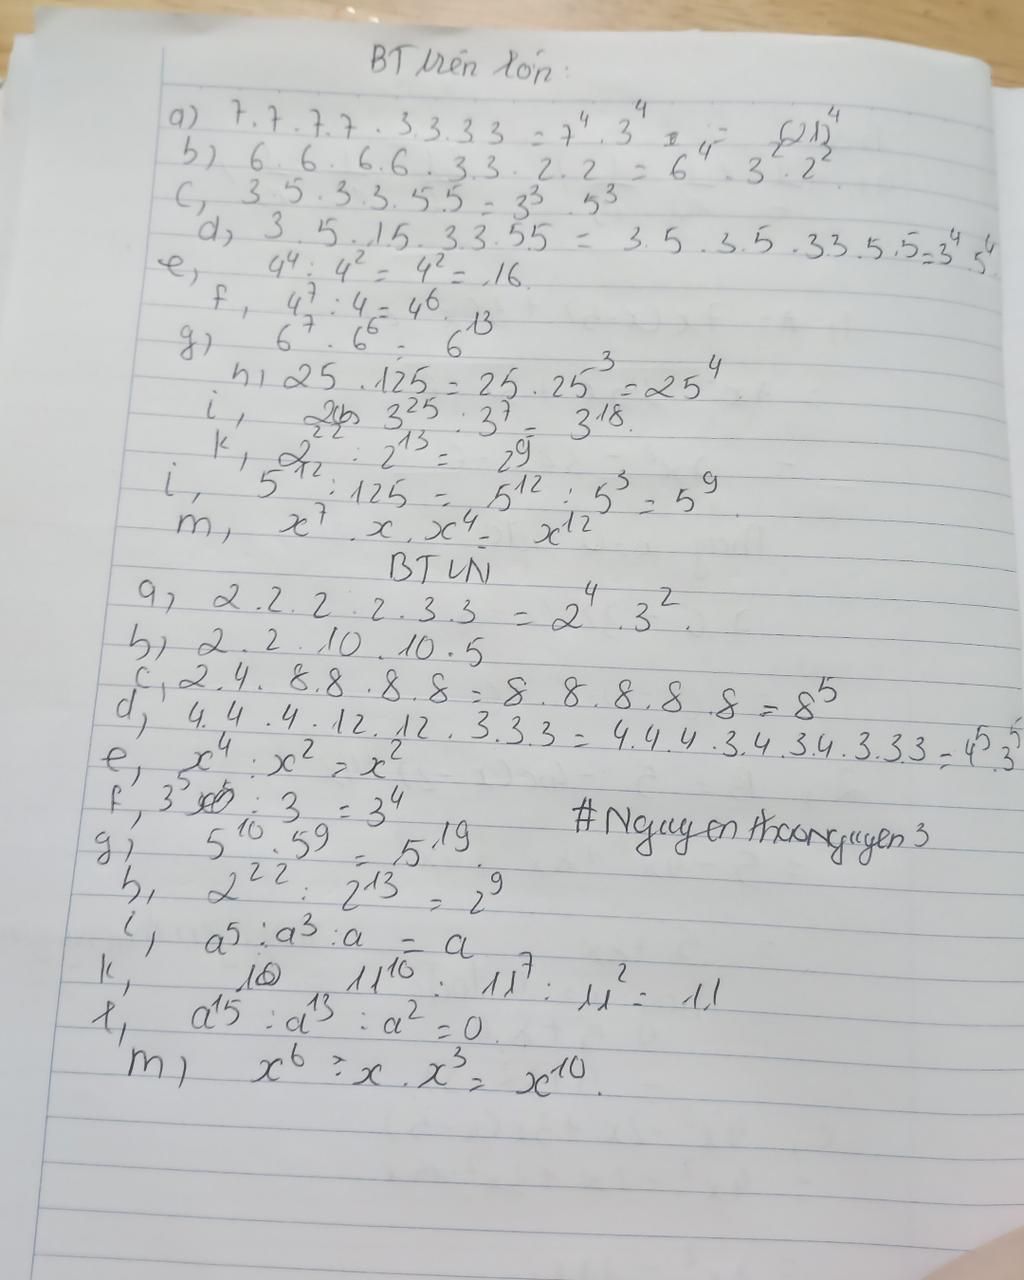 BT trên lớn:
a) 7.7.7.7.3.3.3.3 = 7⁴.3⁴ = (21)⁴
b) 6.6.6.6.3.3.2.2 = 6⁴.3².2²
c, 3.5.3.3.5.5 = 3³.5³
d, 3.5.15.3.3.5.5 = 3.5.3.5.3.3.5.5=3⁴.5⁴
e, 4⁴:4² = 4² = 16.
f, 4⁷:4 = 4⁶.
g) 6⁷.6⁶ = 6¹³
h, 25.125 = 25.25³ = 25⁴
i, 3²⁵:3⁷ = 3¹⁸.
k, 2²²:2¹³ = 2⁹
i, 5¹²:125 = 5¹²:5³ = 5⁹.
m, x⁷.x.x⁴ = x¹²
BTVN
a, 2.2.2.2.3.3 = 2⁴.3².
b, 2.2.10.10.5
c, 2.4.8.8.8.8 = 8.8.8.8.8 = 8⁵
d, 4.4.4.12.12.3.3.3 = 4.4.4.3.4.3.4.3.3.3 = 4⁵.3⁵
e, x⁴:x² = x²
f, 3⁵:3 = 3⁴
#Nguyenthaonguyen3
g, 5¹⁰.5⁹ = 5¹⁹.
h, 2²²:2¹³ = 2⁹
i, a⁵:a³:a = a
k, 11¹⁰:11⁷:11² = 11
l, a¹⁵:a¹³:a² = 0.
m, x⁶:x.x³ = x¹⁰.